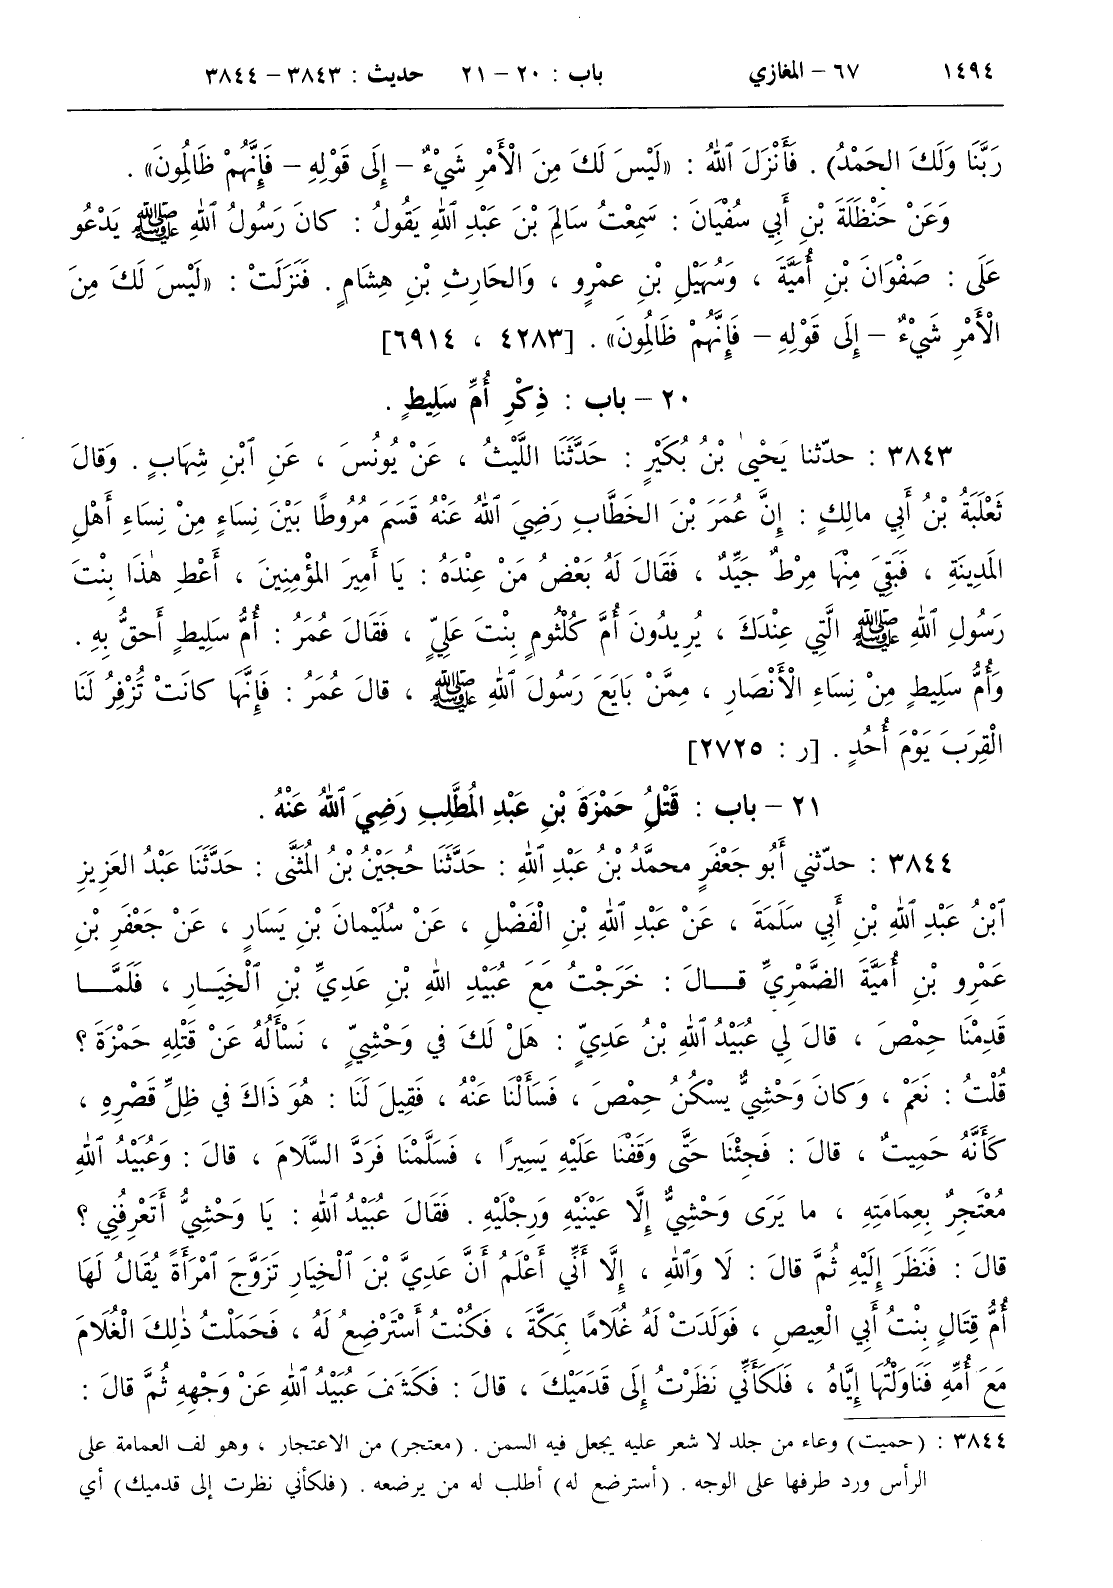 ١٤٩٤ ٦٧ - المغازي باب : ٢٠ - ٢١ حديث : ٣٨٤٣ - ٣٨٤٤
رَبَّنَا وَلَكَ الحَمْدُ) . فَأَنْزَلَ ٱللهُ : «لَيْسَ لَكَ مِنَ الْأَمْرِ شَيْءٌ - إِلَى قَوْلِهِ - فَإِنَّهُمْ ظَالِمُونَ» .
وَعَنْ حَنْظَلَةَ بْنِ أَبِي سُفْيَانَ : سَمِعْتُ سَالِمَ بْنَ عَبْدِ ٱللهِ يَقُولُ : كانَ رَسُولُ ٱللهِ ﷺ يَدْعُو
عَلَى : صَفْوَانَ بْنِ أُمَيَّةَ ، وَسُهَيْلِ بْنِ عمْرِو ، وَالحَارِثِ بْنِ هِشَامٍ . فَنَزَلَتْ : «لَيْسَ لَكَ مِنَ
الْأَمْرِ شَيْءٌ - إِلَى قَوْلِهِ - فَإِنَّهُمْ ظَالِمُونَ» . [٤٢٨٣ ، ٦٩١٤]
٢٠ - باب : ذِكْرِ أُمِّ سَلِيطٍ .
٣٨٤٣ : حدّثنا يَحْيىٰ بْنُ بُكَيْرٍ : حَدَّثَنَا اللَّيْثُ ، عَنْ يُونُسَ ، عَنِ ٱبْنِ شِهَابٍ . وَقالَ
ثَعْلَبَةُ بْنُ أَبِي مالِكٍ : إِنَّ عُمَرَ بْنَ الخَطَّابِ رَضِيَ ٱللهُ عَنْهُ قَسَمَ مُرُوطًا بَيْنَ نِسَاءٍ مِنْ نِسَاءِ أَهْلِ
المَدِينَةِ ، فَبَقِيَ مِنْهَا مِرْطٌ جَيِّدٌ ، فَقَالَ لَهُ بَعْضُ مَنْ عِنْدَهُ : يَا أَمِيرَ المُؤْمِنِينَ ، أَعْطِ هٰذَا بِنْتَ
رَسُولِ ٱللهِ ﷺ الَّتِي عِنْدَكَ ، يُرِيدُونَ أُمَّ كُلْثُومٍ بِنْتَ عَلِيٍّ ، فَقَالَ عُمَرُ : أُمُّ سَلِيطٍ أَحقُّ بِهِ .
وَأُمُّ سَلِيطٍ مِنْ نِسَاءِ الْأَنْصَارِ ، مِمَّنْ بَايَعَ رَسُولَ ٱللهِ ﷺ ، قالَ عُمَرُ : فَإِنَّهَا كانَتْ تُزْفِرُ لَنَا
الْقِرَبَ يَوْمَ أُحُدٍ . [ر : ٢٧٢٥]
٢١ - باب : قَتْلُ حَمْزَةَ بْنِ عَبْدِ المُطَّلِبِ رَضِيَ ٱللهُ عَنْهُ .
٣٨٤٤ : حدّثني أَبُو جَعْفَرٍ محمَّدُ بْنُ عَبْدِ ٱللهِ : حَدَّثَنَا حُجَيْنُ بْنُ المُثَنَّى : حَدَّثَنَا عَبْدُ العَزِيزِ
ٱبْنُ عَبْدِ ٱللهِ بْنِ أَبِي سَلَمَةَ ، عَنْ عَبْدِ ٱللهِ بْنِ الْفَضْلِ ، عَنْ سُلَيْمانَ بْنِ يَسَارٍ ، عَنْ جَعْفَرِ بْنِ
عَمْرِو بْنِ أُمَيَّةَ الضَّمْرِيِّ قـــالَ : خَرَجْتُ مَعَ عُبَيْدِ اللهِ بْنِ عَدِيِّ بْنِ ٱلْخِيَـارِ ، فَلَمَّـــا
قَدِمْنَا حِمْصَ ، قالَ لِي عُبَيْدُ ٱللهِ بْنُ عَدِيٍّ : هَلْ لَكَ في وَحْشِيٍّ ، نَسْأَلُهُ عَنْ قَتْلِهِ حَمْزَةَ ؟
قُلْتُ : نَعَمْ ، وَكانَ وَحْشِيٌّ يَسْكُنُ حِمْصَ ، فَسَأَلْنَا عَنْهُ ، فَقِيلَ لَنَا : هُوَ ذَاكَ في ظِلِّ قَصْرِهِ ،
كَأَنَّهُ حَمِيتٌ ، قالَ : فَجِئْنَا حَتَّى وَقَفْنَا عَلَيْهِ يَسِيرًا ، فَسَلَّمْنَا فَرَدَّ السَّلَامَ ، قالَ : وَعُبَيْدُ ٱللهِ
مُعْتَجِرٌ بِعِمَامَتِهِ ، ما يَرَى وَحْشِيٌّ إِلَّا عَيْنَيْهِ وَرِجْلَيْهِ . فَقَالَ عُبَيْدُ ٱللهِ : يَا وَحْشِيُّ أَتَعْرِفُنِي ؟
قالَ : فَنَظَرَ إِلَيْهِ ثُمَّ قالَ : لَا وَٱللهِ ، إِلَّا أَنِّي أَعْلَمُ أَنَّ عَدِيَّ بْنَ ٱلْخِيَارِ تَزَوَّجَ ٱمْرَأَةً يُقَالُ لَهَا
أُمُّ قِتَالٍ بِنْتُ أَبِي الْعِيصِ ، فَوَلَدَتْ لَهُ غُلَامًا بِمَكَّةَ ، فَكُنْتُ أَسْتَرْضِعُ لَهُ ، فَحَمَلْتُ ذٰلِكَ الْغُلَامَ
مَعَ أُمِّهِ فَنَاوَلْتُهَا إِيَّاهُ ، فَلَكَأَنِّي نَظَرْتُ إِلَى قَدَمَيْكَ ، قالَ : فَكَشَفَ عُبَيْدُ ٱللهِ عَنْ وَجْهِهِ ثُمَّ قالَ :
٣٨٤٤ : (حميت) وعاء من جلد لا شعر عليه يجعل فيه السمن . (معتجر) من الاعتجار ، وهو لف العمامة على
الرأس ورد طرفها على الوجه . (أسترضع له) أطلب له من يرضعه . (فلكأني نظرت إلى قدميك) أي